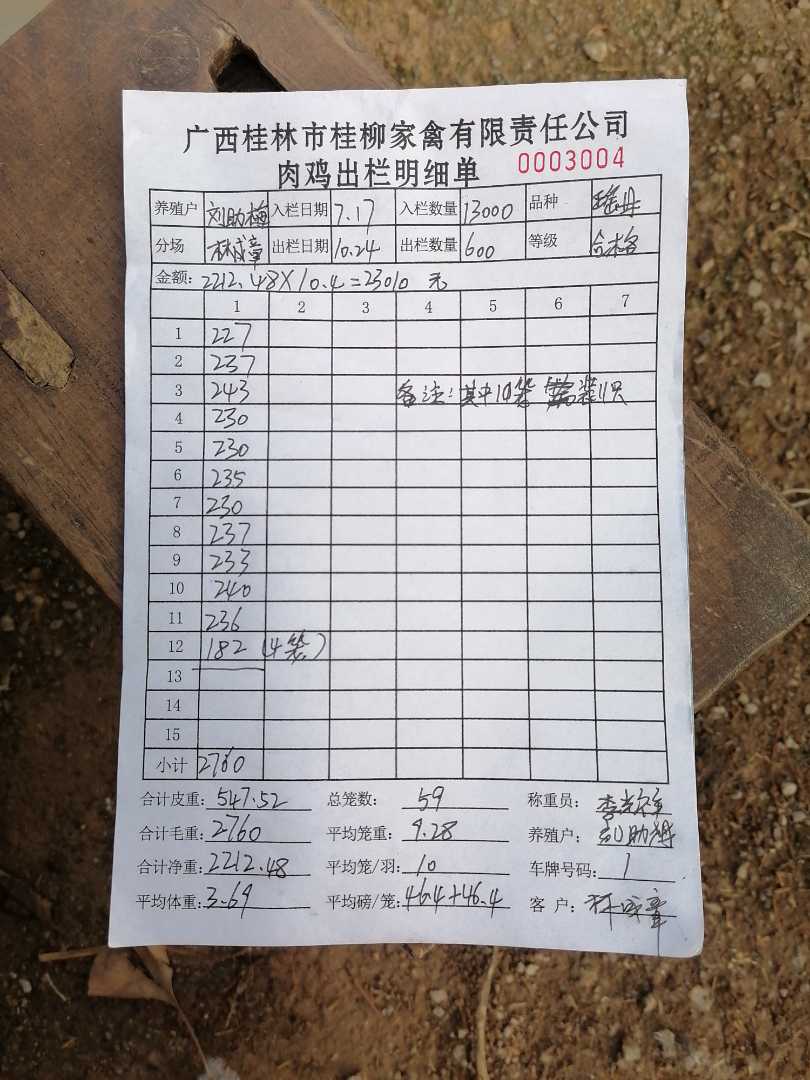 广西桂林市桂柳家禽有限责任公司
肉鸡出栏明细单 0003004
养殖户 刘助梅 入栏日期 7.17 入栏数量 13000 品种 瑶丹
分场 林成章 出栏日期 10.24 出栏数量 600 等级 合格
金额: 2212.48×10.4=23010 元
1 2 3 4 5 6 7
1 227
2 237
3 243 备注:其中10笼 装11只
4 230
5 230
6 235
7 230
8 237
9 233
10 240
11 236
12 182 (4笼)
13
14
15
小计 2760
合计皮重: 547.52 总笼数: 59 称重员:
合计毛重: 2760 平均笼重: 9.28 养殖户: 刘助梅
合计净重: 2212.48 平均笼/羽: 10 车牌号码: 1
平均体重: 3.69 平均磅/笼: 46.4+46.4 客户: 林成章